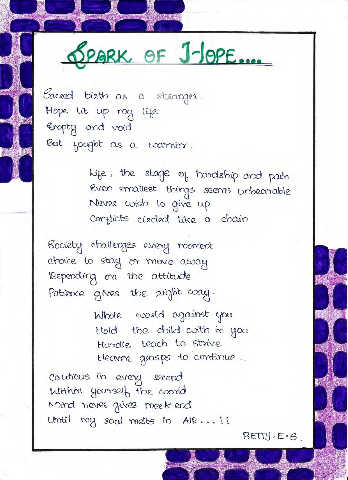 SPARK OF HOPE....
Sacred birth as a stranger.
Hope lit up my life
Empty and void
But fought as a warrior.
Life, the stage of hardship and pain
Even smallest things seems unbearable
Never wish to give up
Conflicts circled like a chain
Society challenges every moment
choice to stay or move away
Depending on the attitude
Patience gives the right way.
Whole world against you
Hold the child with in you
Hurdle teach to strive
Electric gasps to continue.
Cautious in every second
Within yourself, the world
Mind never gives meek end
Until my soul melts in AIR...!!
BETTY.E.S